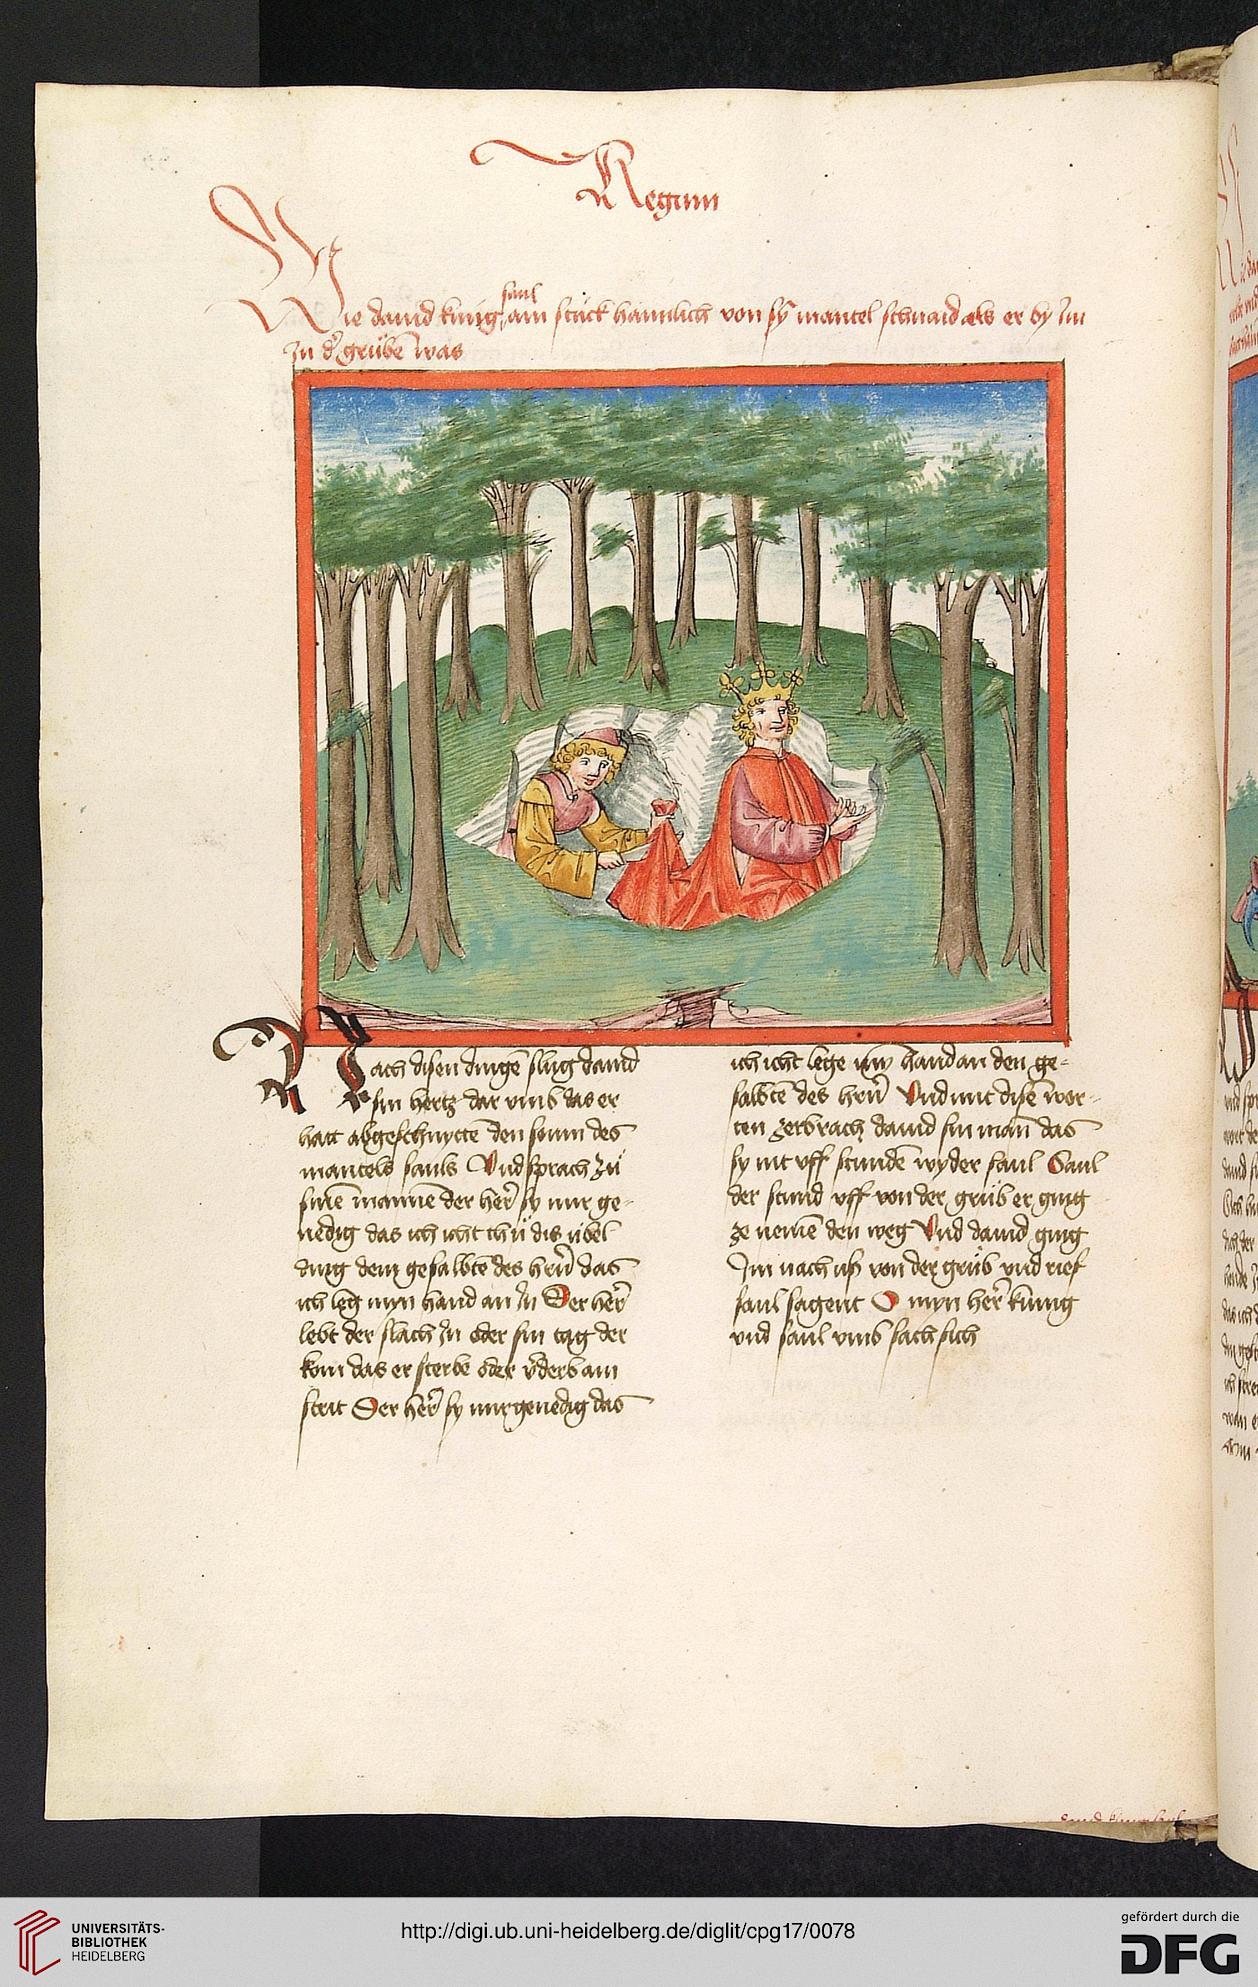 Regum
Wie dauid kúnig saul ain stúck haimlich von sÿ mantel schnaid als er bÿ Im
Jn d' grůben was
Nach disen dingē slůg dauid
sin hertz dar vmb das er
hatt abgeschnyttē den soum des
mantels sauls Vnd sprach zů
sinē mannē der her̄ sy mir ge-
nedig das ich icht thů dis úbel
ding dem gesalbtē des her̄n das
ich leg myn hand an Jn Der her̄
lebt der slach Jn oder sin tag der
kom das er sterbe oder v̄derb am
strit Der her̄ sy mir genedig das
ich icht lege myn hand an den ge-
salbtē des her̄n Vnd mit disē wor-
ten zerbrach dauid sin man das
sy nit vff stundē wyder saul Saul
der stund vff von der grůb er ging
ze nemē den weg Vnd dauid ging
Jm nach uß von der grůb vnd rief
saul sagent O myn her̄ kúnig
vnd saul vmb sach sich
UNIVERSITÄTS-
BIBLIOTHEK
HEIDELBERG
http://digi.ub.uni-heidelberg.de/diglit/cpg17/0078
gefördert durch die
DFG